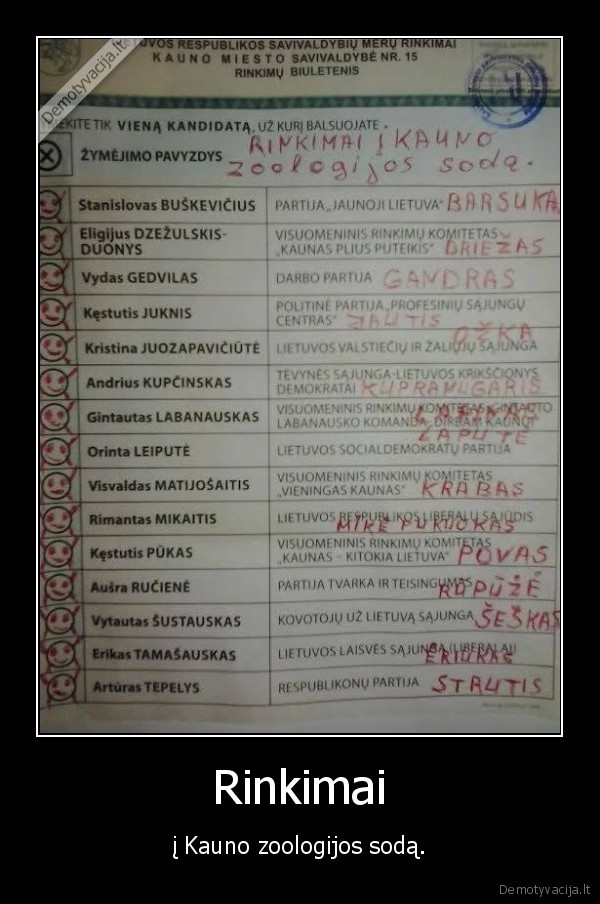 Demotyvacija.lt
LIETUVOS RESPUBLIKOS SAVIVALDYBIŲ MERŲ RINKIMAI
KAUNO MIESTO SAVIVALDYBĖ NR. 15
RINKIMŲ BIULETENIS
VIENĄ KANDIDATĄ, UŽ KURĮ BALSUOJATE
RINKIMAI Į KAUNO
ŽYMĖJIMO PAVYZDYS
zoologijos sodą.
Stanislovas BUŠKEVIČIUS PARTIJA „JAUNOJI LIETUVA“ BARSUKAS
Eligijus DZEŽULSKIS- VISUOMENINIS RINKIMŲ KOMITETAS
DUONYS „KAUNAS PLIUS PUTEIKIS“ DRIEŽAS
Vydas GEDVILAS DARBO PARTIJA GANDRAS
Kęstutis JUKNIS POLITINĖ PARTIJA „PROFESINIŲ SĄJUNGŲ
CENTRAS“ JAUTIS
OŽKA
Kristina JUOZAPAVIČIŪTĖ LIETUVOS VALSTIEČIŲ IR ŽALIŲJŲ SĄJUNGA
Andrius KUPČINSKAS TĖVYNĖS SĄJUNGA-LIETUVOS KRIKŠČIONYS
DEMOKRATAI KUPRANUGARIS
Gintautas LABANAUSKAS VISUOMENINIS RINKIMŲ KOMITETAS „GINTAUTO
LABANAUSKO KOMANDA „DIRBAM KAUNUI“
LAPUTE
Orinta LEIPUTĖ LIETUVOS SOCIALDEMOKRATŲ PARTIJA
Visvaldas MATIJOŠAITIS VISUOMENINIS RINKIMŲ KOMITETAS
„VIENINGAS KAUNAS“ KRABAS
Rimantas MIKAITIS LIETUVOS RESPUBLIKOS LIBERALŲ SĄJŪDIS
MIKĖ PUKUOKAS
Kęstutis PŪKAS VISUOMENINIS RINKIMŲ KOMITETAS
„KAUNAS – KITOKIA LIETUVA“ POVAS
Aušra RUČIENĖ PARTIJA TVARKA IR TEISINGUMAS RUPŪŽĖ
Vytautas ŠUSTAUSKAS KOVOTOJŲ UŽ LIETUVĄ SĄJUNGA ŠEŠKAS
Erikas TAMAŠAUSKAS LIETUVOS LAISVĖS SĄJUNGA (LIBERALAI)
ĖRIUKAS
Artūras TEPELYS RESPUBLIKONŲ PARTIJA STRUTIS
Rinkimai
į Kauno zoologijos sodą.
Demotyvacija.lt